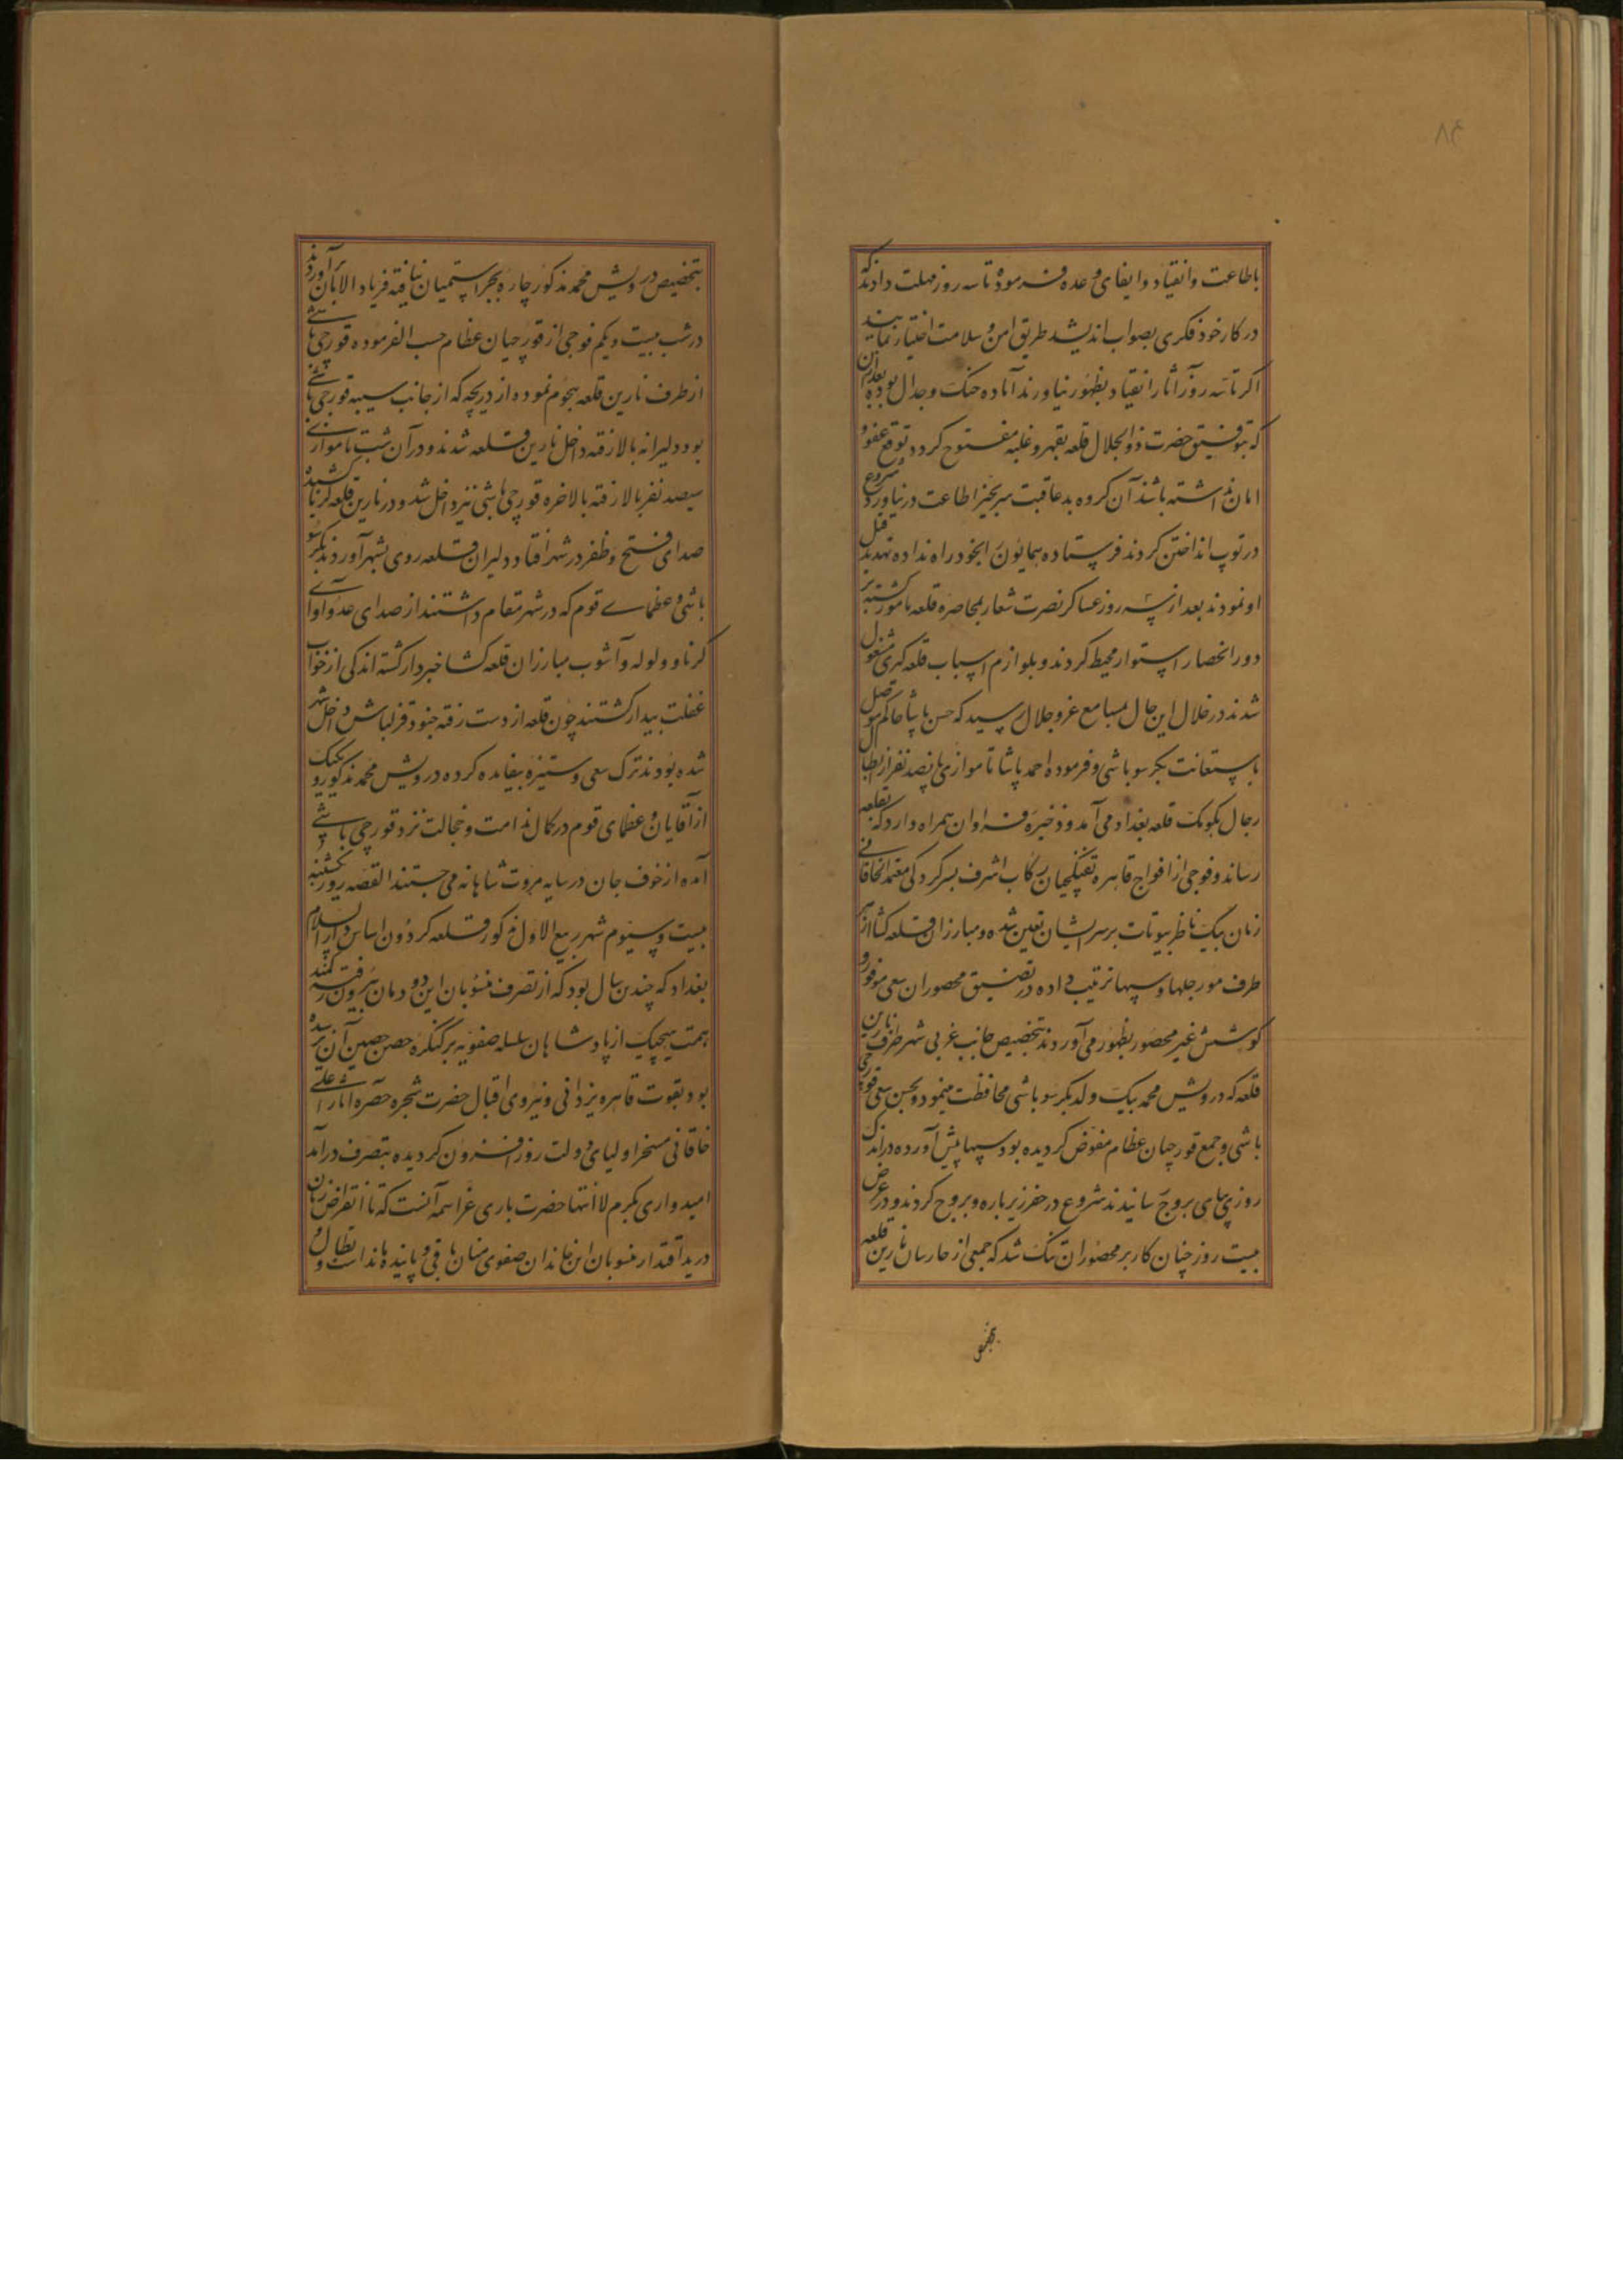 ۸۴
باطاعت و انقیاد و ایفای وعده فرموده تا سه روز مهلت دادند که
در کار خود فکری بصواب اندیشند طریق امن و سلامت اختیار نمایند
اگر تا سه روز آثار انقیاد بظهور نیاورند آماده جنک و جدال بوده بعد از آن
که بتوفیق حضرت ذوالجلال قلعه بقهر و غلبه مفتوح کردد توقع عفو و
امان نداشته باشند آن کروه بدعاقبت سر بچیز اطاعت در نیاورده شروع
در توپ انداختن کردند فرستاده همایون را بخود راه نداده تهدید قتل
او نمودند بعد از سه روز عساکر نصرت شعار بمحاصره قلعه مامور کشته بر
دور انحصار استوار محیط کردند و بلوازم اسباب قلعه کیری مشغول
شدند در خلال این حال بمسامع عز و جلال رسید که حسن پاشا حاکم موصل
باستعانت بکر سوباشی و فرموده احمد پاشا تا موازی پانصد نفر از ابطال
رجال بکومک قلعه بغداد می آمد و ذخیره فراوان همراه دارد که بقلعه
رساند و فوجی از افواج قاهره تفنکچیان رکاب اشرف بسرکردکی معتمد الخاقانی
زمان بیک ناظر بیوتات بر سر ایشان تعین شده و مبارزان قلعه کشا از هر
طرف مورجلها و سیبها ترتیب داده در تضییق محصوران سعی موفور و
کوشش غیر محصور بظهور می آوردند بتخصیص جانب غربی شهر طرف نارین
قلعه که درویش محمد بیک ولد بکر سوباشی محافظت مینمود و بحسن سعی قورچی
باشی و جمع قورچیان عظام مفوض کردیده بود سیبها پیش آورده در اندک
روزی بپای بروج رسانیدند شروع در حفر زیر باره و بروج کردند و در عرض
بیست روز چنان کار بر محصوران تنک شد که جمعی از حارسان نارین قلعه
بتخصیص
بتخصیص درویش محمد مذکور چاره بجز استیمان نیافته فریاد الامان برآوردند
در شب بیست و یکم فوجی از قورچیان عظام حسب الفرموده قورچی باشی
از طرف نارین قلعه هجوم نموده از دریچه که از جانب سیبه قورچی باشی
بود دلیرانه بالا رفته داخل نارین قلعه شدند و در آن شب تا موازی
سیصد نفر بالا رفته بالاخره قورچی باشی نیز داخل شد و در نارین قلعه کرنا کشیده
صدای فتح و ظفر در شهر افتاد دلیران قلعه روی بشهر آوردند بکر سو
باشی و عظمای قوم که در شهر مقام داشتند از صدای عدو آوای
کرنا و ولوله و آشوب مبارزان قلعه کشا خبردار کشته اندکی از خواب
غفلت بیدار کشتند چون قلعه از دست رفته جنود قزلباش داخل شهر
شده بودند ترک سعی و ستیزه بیفایده کرده درویش محمد مذکور و یکیک
از آقایان و عظمای قوم در کمال ندامت و خجالت نزد قورچی باشی
آمده از خوف جان در سایه مروت شاهانه می جستند القصه روز یکشنبه
بیست و سیوم شهر ربیع الاول مذکور قلعه کردون اساس دار السلام
بغداد که چندین سال بود که از تصرف منسوبان این دودمان بیرون رفته کمند
همت هیچیک از پادشاهان سلسله صفویه بر کنکره حصن حصین آن نرسیده
بود بقوت قاهره یزدانی و نیروی اقبال حضرت شجره حضره آثار اعلی
خاقانی مسخر اولیای دولت روز افزون کردیده بتصرف درآمد
امیدواری بکرم لا انتها حضرت باری عز اسمه آنست که تا انقراض زمان
در ید اقتدار منسوبان این خاندان صفوی نشان باقی و پاینده باند